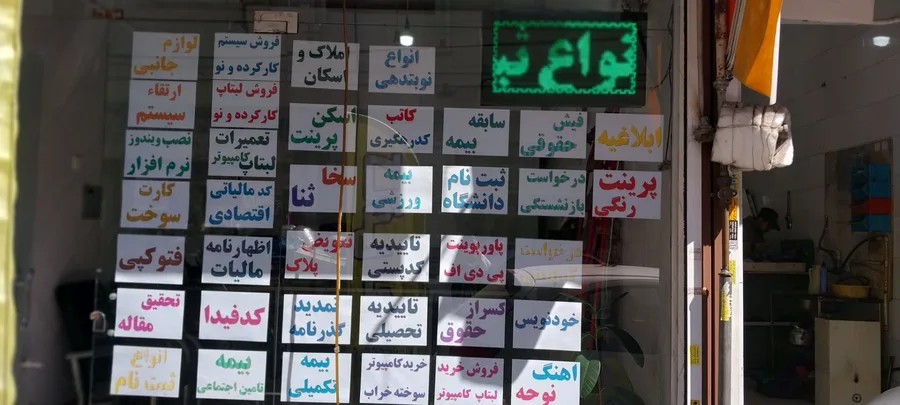 انواع ث
ابلاغیه
پرینت
رنگی
فیش
حقوقی
درخواست
بازنشستگی
خودنویس
آهنگ
نوحه
سابقه
بیمه
ثبت نام
دانشگاه
پاورپوینت
پی دی اف
کسراز
حقوق
فروش خرید
لبتاپ کامپیوتر
انواع
نوبتدهی
کاتب
کدرهگیری
بیمه
ورزشی
تاییدیه
کدپستی
تاییدیه
تحصیلی
خریدکامپیوتر
سوخته خراب
املاک و
اسکان
اسکن
پرینت
سخا
ثنا
تعویض
پلاک
تمدید
گذرنامه
بیمه
تکمیلی
فروش سیستم
کارکرده و نو
فروش لبتاپ
کارکرده و نو
تعمیرات
لبتاپ کامپیوتر
کد مالیاتی
اقتصادی
اظهارنامه
مالیات
کدفیدا
بیمه
تامین اجتماعی
لوازم
جانبی
ارتقاء
سیستم
نصب ویندوز
نرم افزار
کارت
سوخت
فتوکپی
تحقیق
مقاله
انواع
ثبت نام